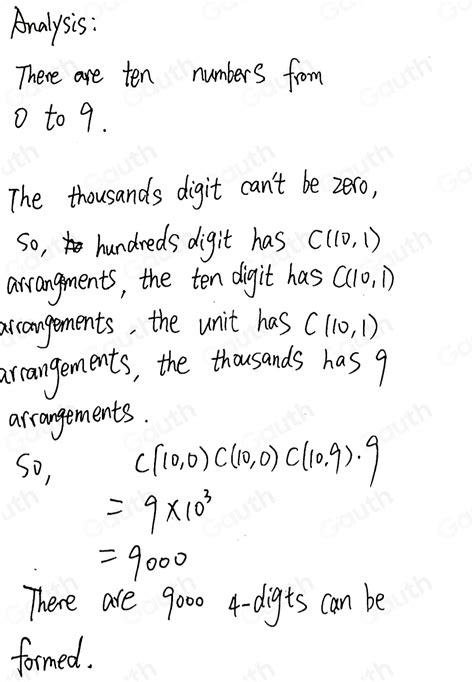 Analysis:
There are ten numbers from
0 to 9.
The thousands digit can't be zero,
So, hundreds digit has C(10,1)
arrangments, the ten digit has C(10,1)
arrangements, the unit has C(10,1)
arrangements, the thousands has 9
arrangements.
So, C(10,0) C(10,0) C(10,9)·9
= 9×10³
= 9000
There are 9000 4-digts can be
formed.